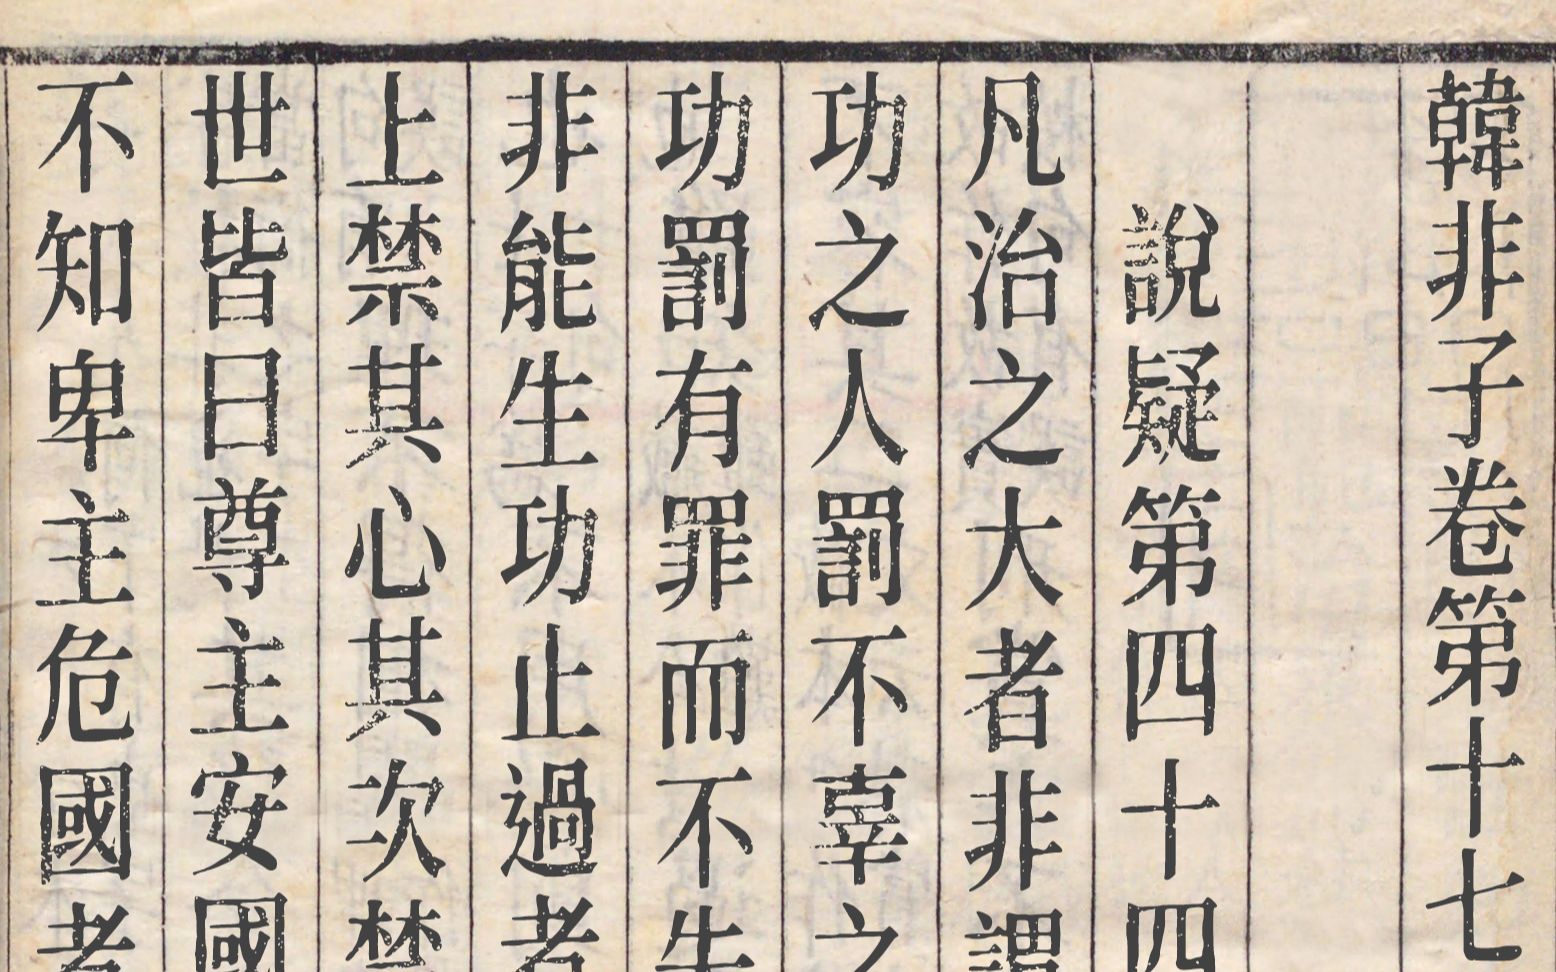 韓非子卷第十七
說疑第四十四
凡治之大者非謂
功之人罰不辜之
功罰有罪而不失
非能生功止過者
上禁其心其次禁
世皆曰尊主安國
不知卑主危國者